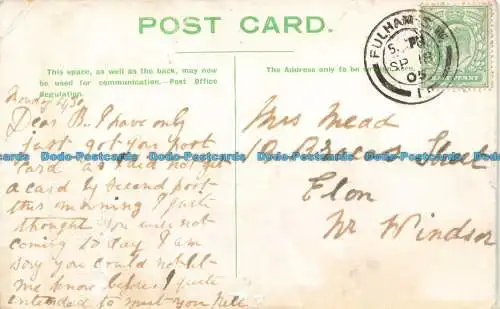 POST CARD.
This space, as well as the back, may now
be used for communication.—Post Office
Regulation.
The Address only to be
FULHAM S.W.
SP 18
05
HALFPENNY
Monday 4/30
Dear B. I have only
just got your post
card as I did not get
a card by second post
this morning I quite
thought you were not
coming to day I am
sory you could not let
me know before I quite
intended to meet you
Mrs Mead
10 Street
Eton
Nr Windsor
Dodo-Postcards Dodo-Postcards Dodo-Postcards Dodo-Postcards